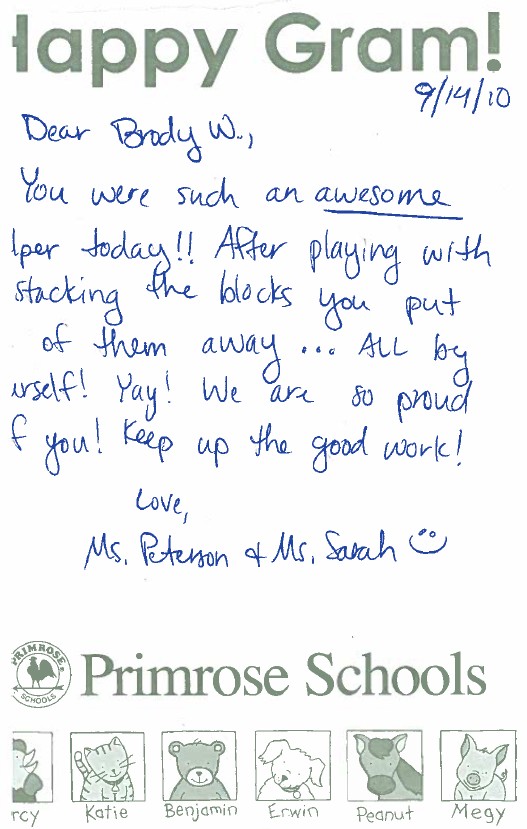 Happy Gram!
9/14/10
Dear Brody W.,
You were such an awesome
lper today!! After playing with
stacking the blocks you put
of them away ... ALL by
urself! Yay! We are so proud
f you! Keep up the good work!
Love,
Ms. Peterson & Ms. Sarah
PRIMROSE SCHOOLS
Primrose Schools
rcy Katie Benjamin Erwin Peanut Megy